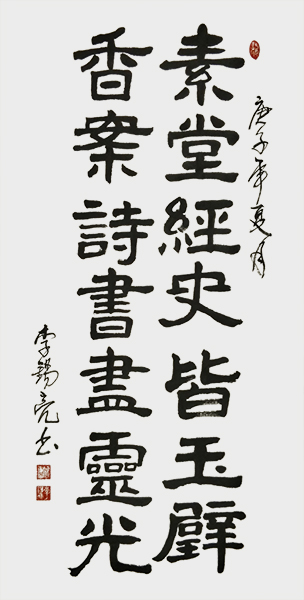 庚子年夏月
素堂經史皆玉璧
香案詩書盡靈光
李錫亮书